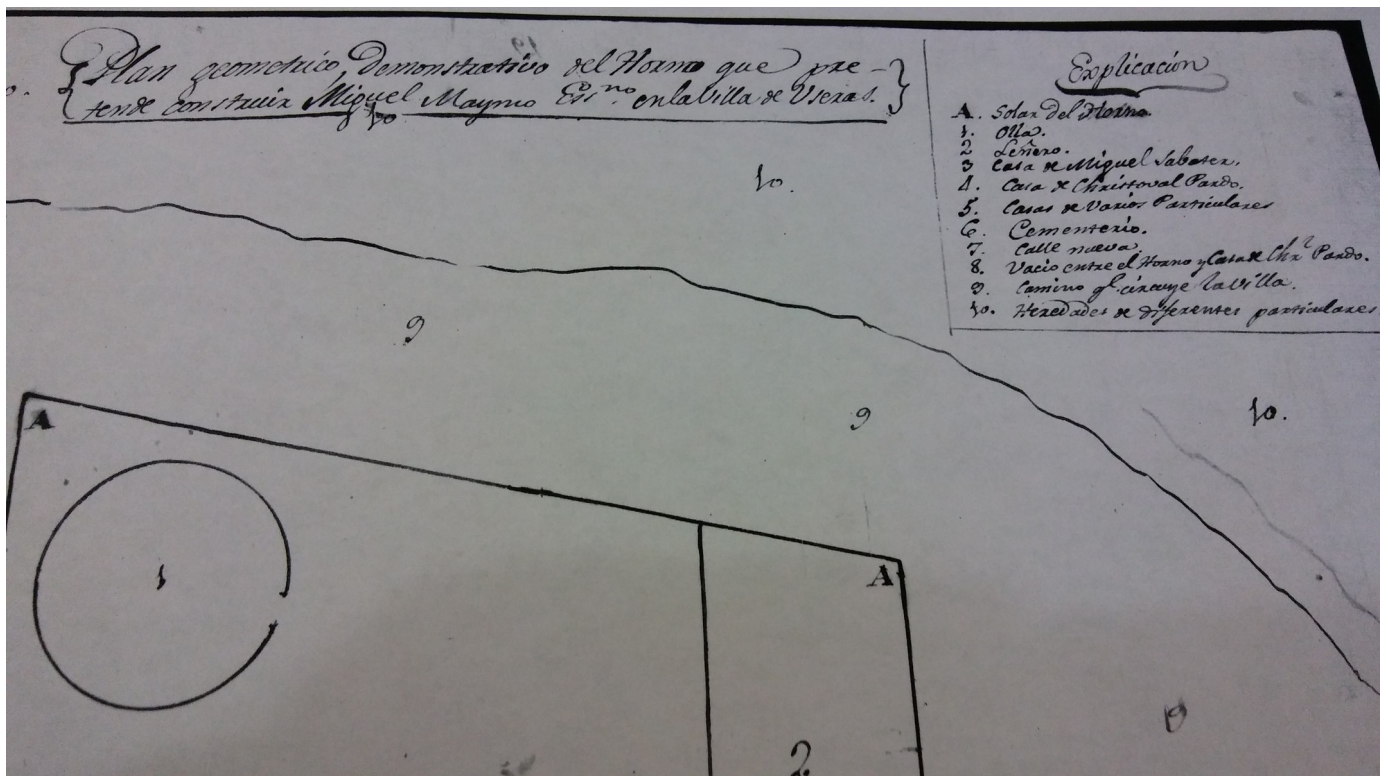 Plan geometrico, Demonstrativo del Horno que pre-
tende construir Miguel Maymo Ess.no en la Villa de Useras.
10
10.
Explicación
A. Solar del Horno
1. Olla.
2 Leñero.
3 Casa de Miguel Sabater.
4. Casa de Christoval Pardo.
5. Casas de Varios Particulares
6. Cementerio.
7. Calle nueva
8. Vacio entre el Horno y Casa de Chr.l Pardo.
9. Camino q.e circuye la Villa.
10. Heredades de diferentes particulares
9
9
10.
A
A
1
2
9